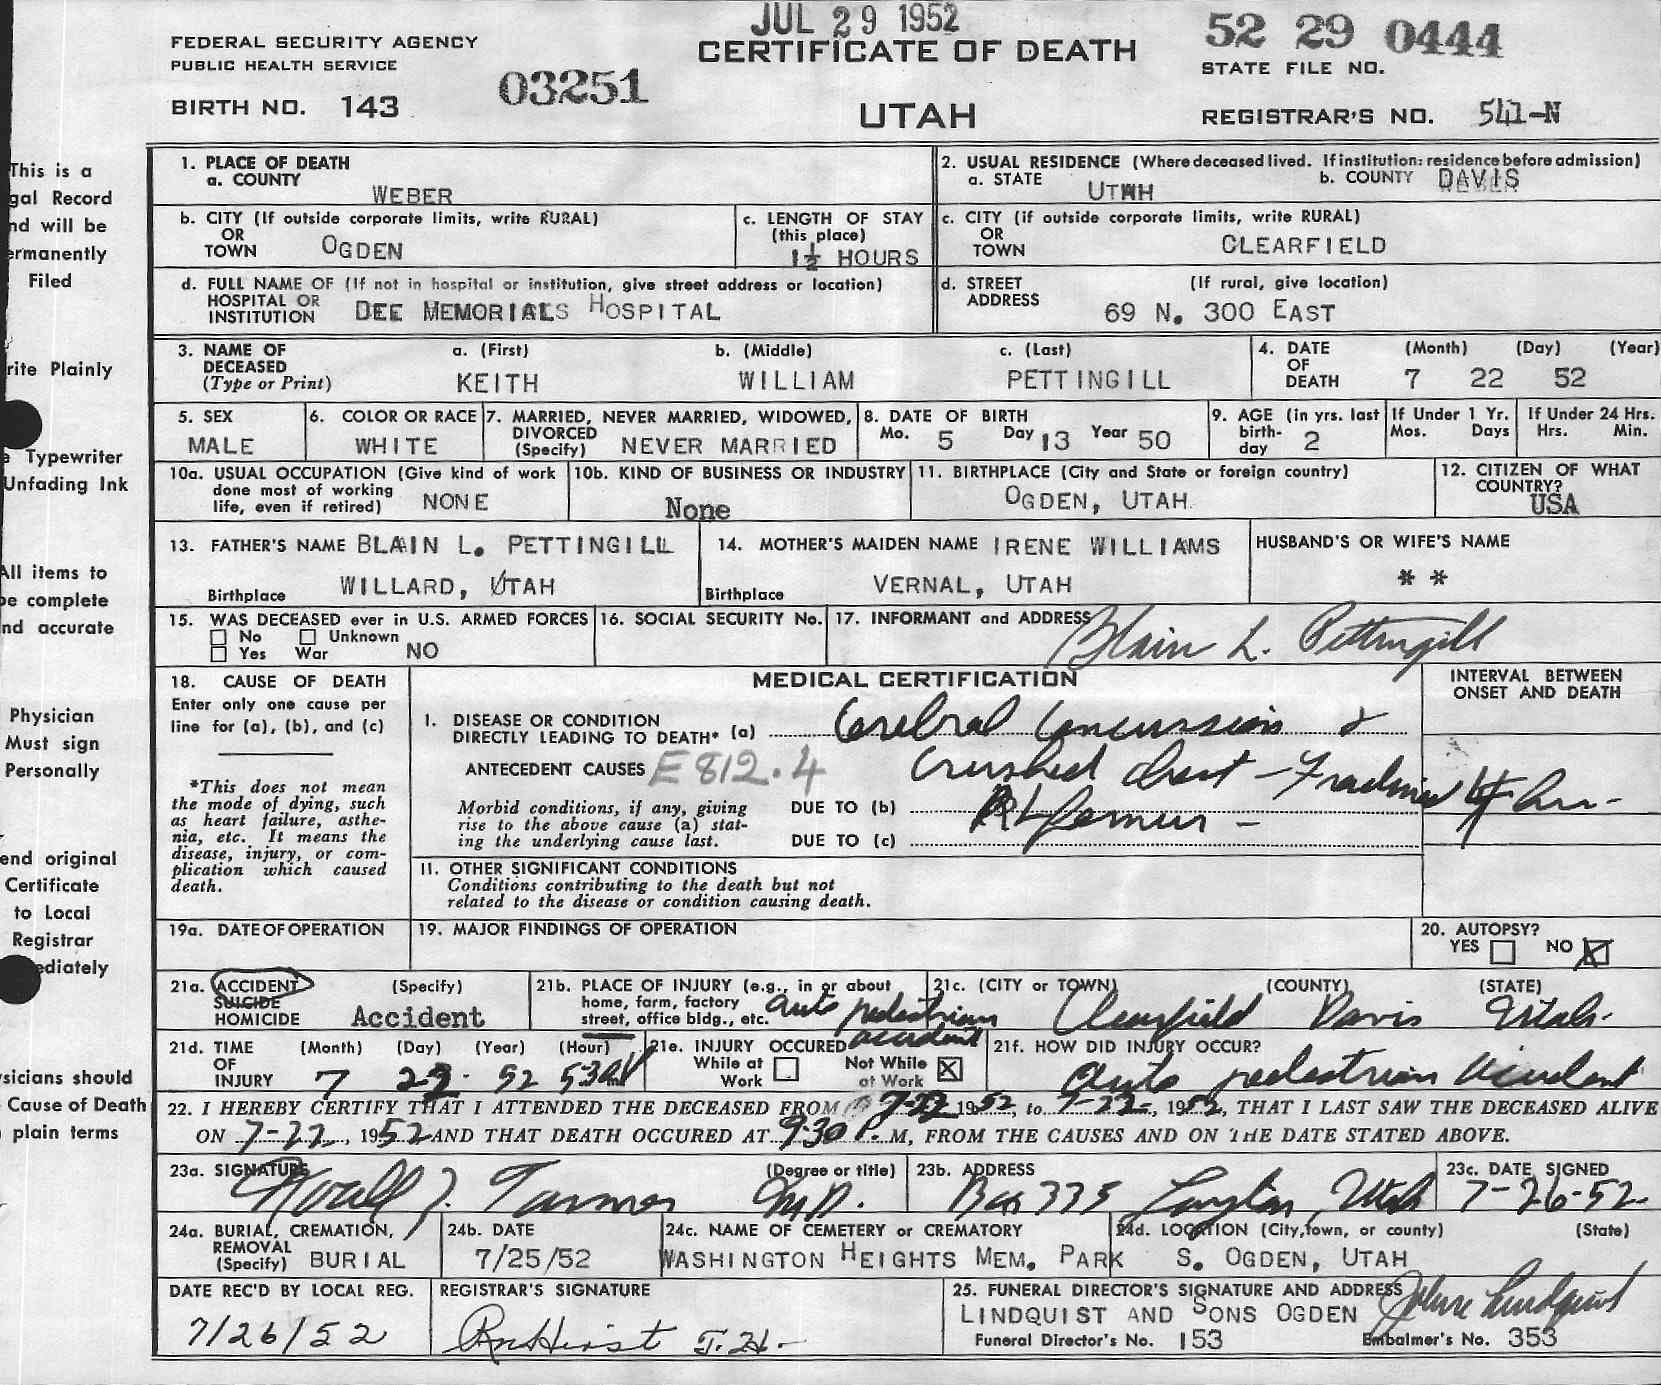 JUL 29 1952
FEDERAL SECURITY AGENCY
PUBLIC HEALTH SERVICE
BIRTH NO. 143
03251
CERTIFICATE OF DEATH
UTAH
52 29 0444
STATE FILE NO.
REGISTRAR'S NO. 541-N
This is a
gal Record
nd will be
ermanently
Filed
rite Plainly
e Typewriter
Unfading Ink
All items to
be complete
nd accurate
Physician
Must sign
Personally
end original
Certificate
to Local
Registrar
ediately
ysicians should
Cause of Death
plain terms
1. PLACE OF DEATH
a. COUNTY WEBER
2. USUAL RESIDENCE (Where deceased lived. If institution: residence before admission)
a. STATE UTAH b. COUNTY DAVIS
b. CITY (If outside corporate limits, write RURAL)
OR
TOWN OGDEN
c. LENGTH OF STAY
(this place)
1½ HOURS
c. CITY (if outside corporate limits, write RURAL)
OR
TOWN CLEARFIELD
d. FULL NAME OF (If not in hospital or institution, give street address or location)
HOSPITAL OR
INSTITUTION DEE MEMORIALS HOSPITAL
d. STREET (If rural, give location)
ADDRESS 69 N. 300 EAST
3. NAME OF DECEASED (Type or Print)
a. (First) KEITH
b. (Middle) WILLIAM
c. (Last) PETTINGILL
4. DATE OF DEATH (Month) (Day) (Year)
7 22 52
5. SEX
MALE
6. COLOR OR RACE
WHITE
7. MARRIED, NEVER MARRIED, WIDOWED,
DIVORCED
(Specify) NEVER MARRIED
8. DATE OF BIRTH
Mo. 5 Day 13 Year 50
9. AGE (in yrs. last
birth-
day 2
If Under 1 Yr.
Mos. Days
If Under 24 Hrs.
Hrs. Min.
10a. USUAL OCCUPATION (Give kind of work
done most of working
life, even if retired) NONE
10b. KIND OF BUSINESS OR INDUSTRY
None
11. BIRTHPLACE (City and State or foreign country)
OGDEN, UTAH.
12. CITIZEN OF WHAT
COUNTRY?
USA
13. FATHER'S NAME BLAIN L. PETTINGILL
Birthplace WILLARD, UTAH
14. MOTHER'S MAIDEN NAME IRENE WILLIAMS
Birthplace VERNAL, UTAH
HUSBAND'S OR WIFE'S NAME
* *
15. WAS DECEASED ever in U.S. ARMED FORCES
No Unknown
Yes War NO
16. SOCIAL SECURITY No.
17. INFORMANT and ADDRESS
Blain L. Pettingill
18. CAUSE OF DEATH
Enter only one cause per
line for (a), (b), and (c)
*This does not mean
the mode of dying, such
as heart failure, asthe-
nia, etc. It means the
disease, injury, or com-
plication which caused
death.
MEDICAL CERTIFICATION
INTERVAL BETWEEN
ONSET AND DEATH
I. DISEASE OR CONDITION
DIRECTLY LEADING TO DEATH* (a) Cerebral Concussion &
ANTECEDENT CAUSES E812.4 Crushed chest -
Morbid conditions, if any, giving
rise to the above cause (a) stat-
ing the underlying cause last.
DUE TO (b) femur -
DUE TO (c)
II. OTHER SIGNIFICANT CONDITIONS
Conditions contributing to the death but not
related to the disease or condition causing death.
19a. DATE OF OPERATION
19. MAJOR FINDINGS OF OPERATION
20. AUTOPSY?
YES NO X
21a. ACCIDENT (Specify)
SUICIDE
HOMICIDE Accident
21b. PLACE OF INJURY (e.g., in or about
home, farm, factory
street, office bldg., etc. auto pedestrian
accident
21c. (CITY or TOWN) (COUNTY) (STATE)
Clearfield Davis Utah.
21d. TIME (Month) (Day) (Year) (Hour)
OF
INJURY 7 22 52
21e. INJURY OCCURED
While at Work
Not While at Work X
21f. HOW DID INJURY OCCUR?
Auto pedestrian accident
22. I HEREBY CERTIFY THAT I ATTENDED THE DECEASED FROM 7-22 1952, to 7-22-, 1952, THAT I LAST SAW THE DECEASED ALIVE
ON 7-22, 1952 AND THAT DEATH OCCURED AT 9:30 P. M, FROM THE CAUSES AND ON THE DATE STATED ABOVE.
23a. SIGNATURE (Degree or title)
M.D.
23b. ADDRESS
Box 335 Layton, Utah
23c. DATE SIGNED
7-26-52
24a. BURIAL, CREMATION,
REMOVAL
(Specify) BURIAL
24b. DATE
7/25/52
24c. NAME OF CEMETERY or CREMATORY
WASHINGTON HEIGHTS MEM. PARK
24d. LOCATION (City, town, or county) (State)
S. OGDEN, UTAH
DATE REC'D BY LOCAL REG.
7/26/52
REGISTRAR'S SIGNATURE
25. FUNERAL DIRECTOR'S SIGNATURE AND ADDRESS
LINDQUIST AND SONS OGDEN
Funeral Director's No. 153
Embalmer's No. 353